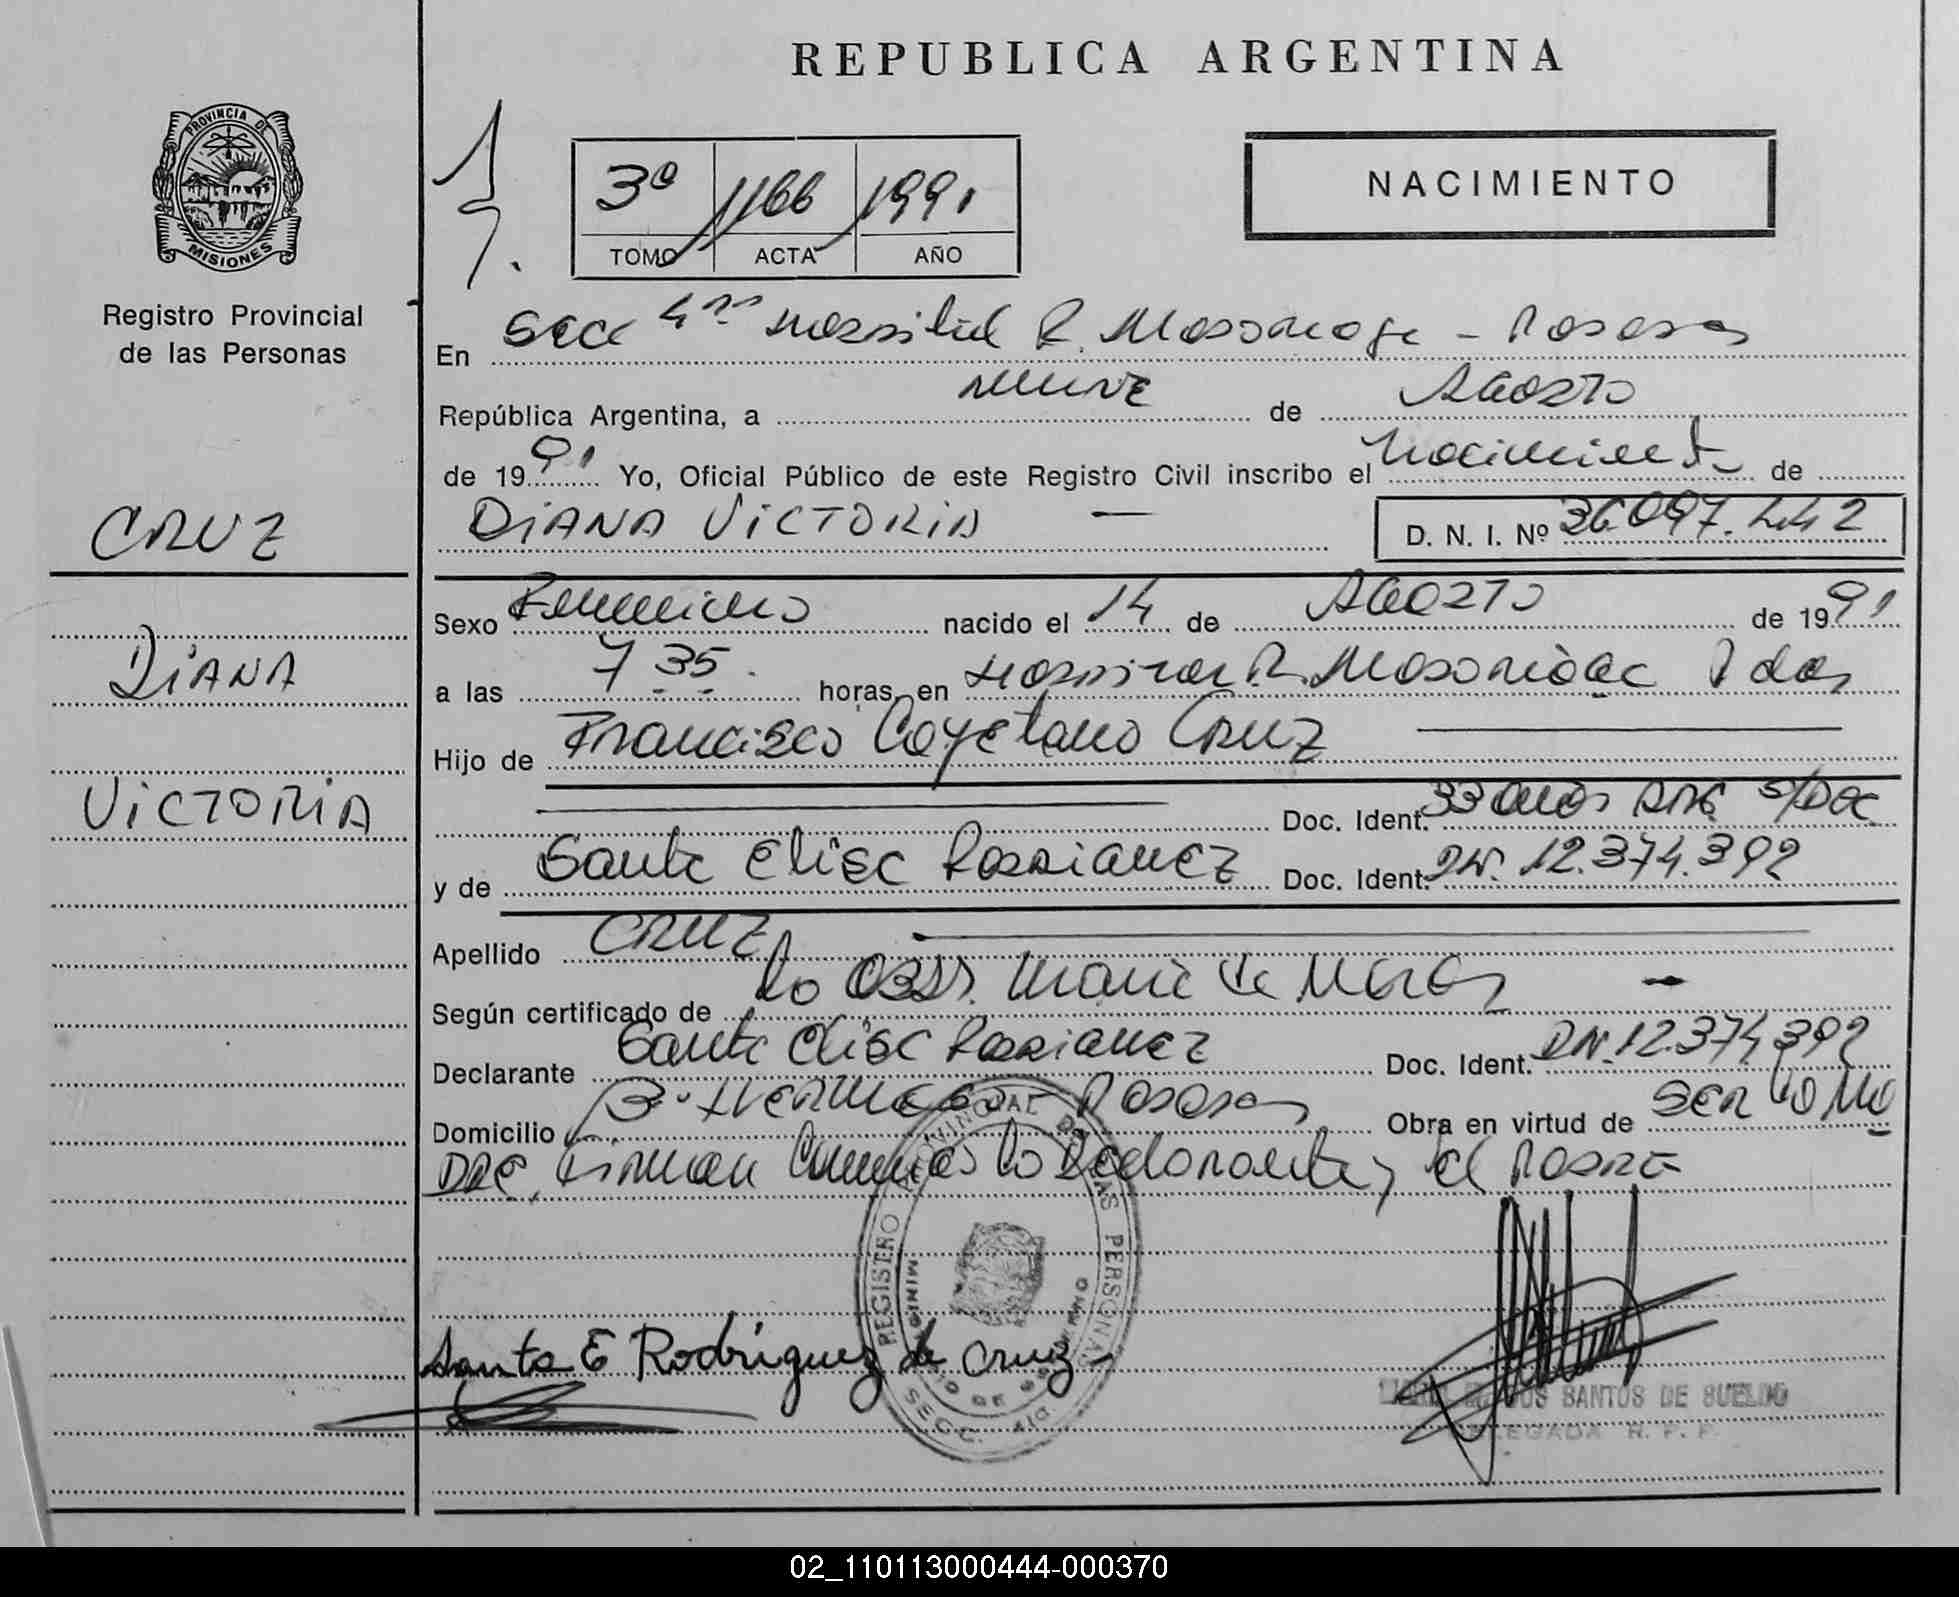 REPUBLICA ARGENTINA
PROVINCIA DE
MISIONES
Registro Provincial
de las Personas
3º 1166 1991
TOMO ACTA AÑO
NACIMIENTO
En Secc 4ta Hospital R. Madariaga - Posadas
República Argentina, a de Agosto
de 1991 Yo, Oficial Público de este Registro Civil inscribo el Nacimiento de
DIANA VICTORIA —
D. N. I. Nº 36.097.442
CRUZ
DIANA
VICTORIA
Sexo Femenino nacido el 14 de AGOSTO de 1991
a las 7 35. horas, en Hospital R. Madariaga Pdas
Hijo de Francisco Cayetano Cruz
Doc. Ident. 33 años ARG S/Doc
y de Santa Elisa Rodriguez Doc. Ident. DN. 12.374.392
Apellido CRUZ
Según certificado de la Obst. Maria de
Declarante Santa Elisa Rodriguez Doc. Ident. DN. 12.374.392
Domicilio Bº Posadas Obra en virtud de ser la Ma
dre, Firman Conmigo la Declarante y el Padre
REGISTRO PROVINCIAL DE LAS PERSONAS
MINISTERIO DE GOBIERNO
SECC.
Santa E Rodríguez de Cruz-
DOS SANTOS DE SUELDO
DELEGADA R. P. P.
02_110113000444-000370